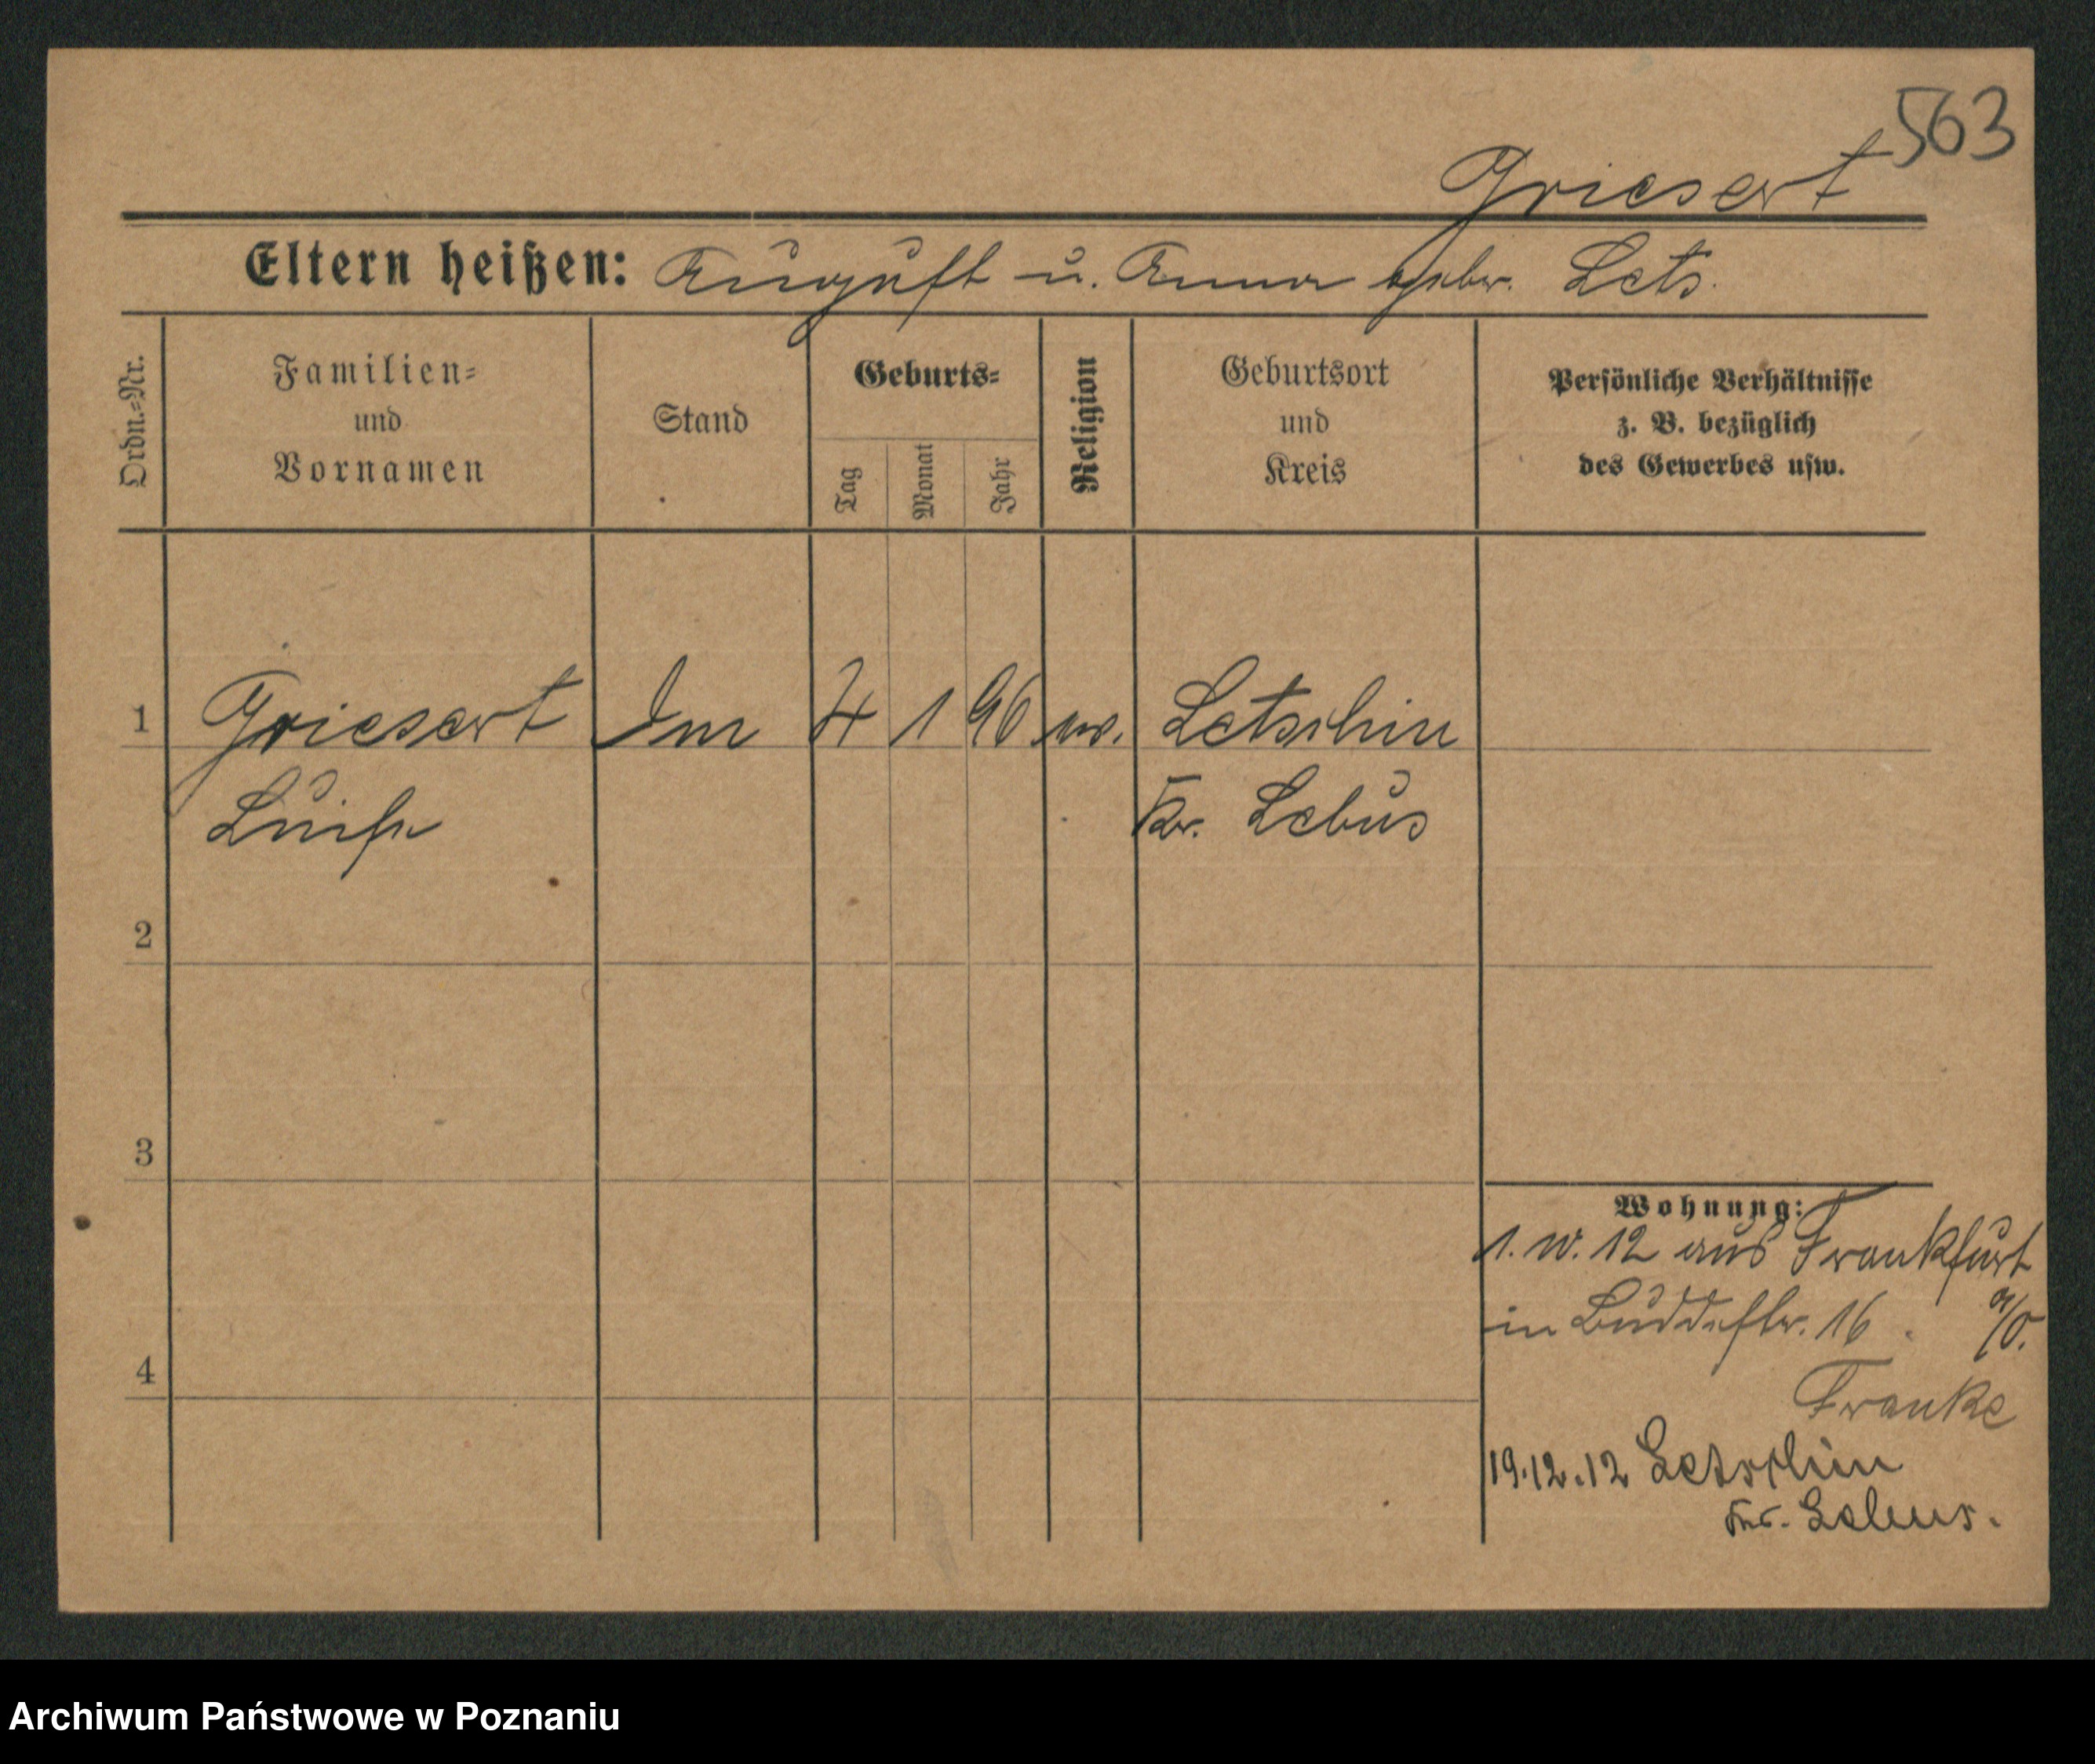 563
Griesert
Eltern heißen: August u. Anna gebr. Lets.
Ordn.-Nr.
Familien-
und
Vornamen
Stand
Geburts-
Tag
Monat
Jahr
Religion
Geburtsort
und
Kreis
Persönliche Verhältnisse
z. B. bezüglich
des Gewerbes usw.
1 Griesert 4 1 96 Letschin
Luise Kr. Lebus
2
3
4
Wohnung:
1. 10. 12 aus Frankfurt
a/O.
in Buddestr. 16.
Franke
19.12.12 Letschin
Kr. Lebus.
Archiwum Państwowe w Poznaniu